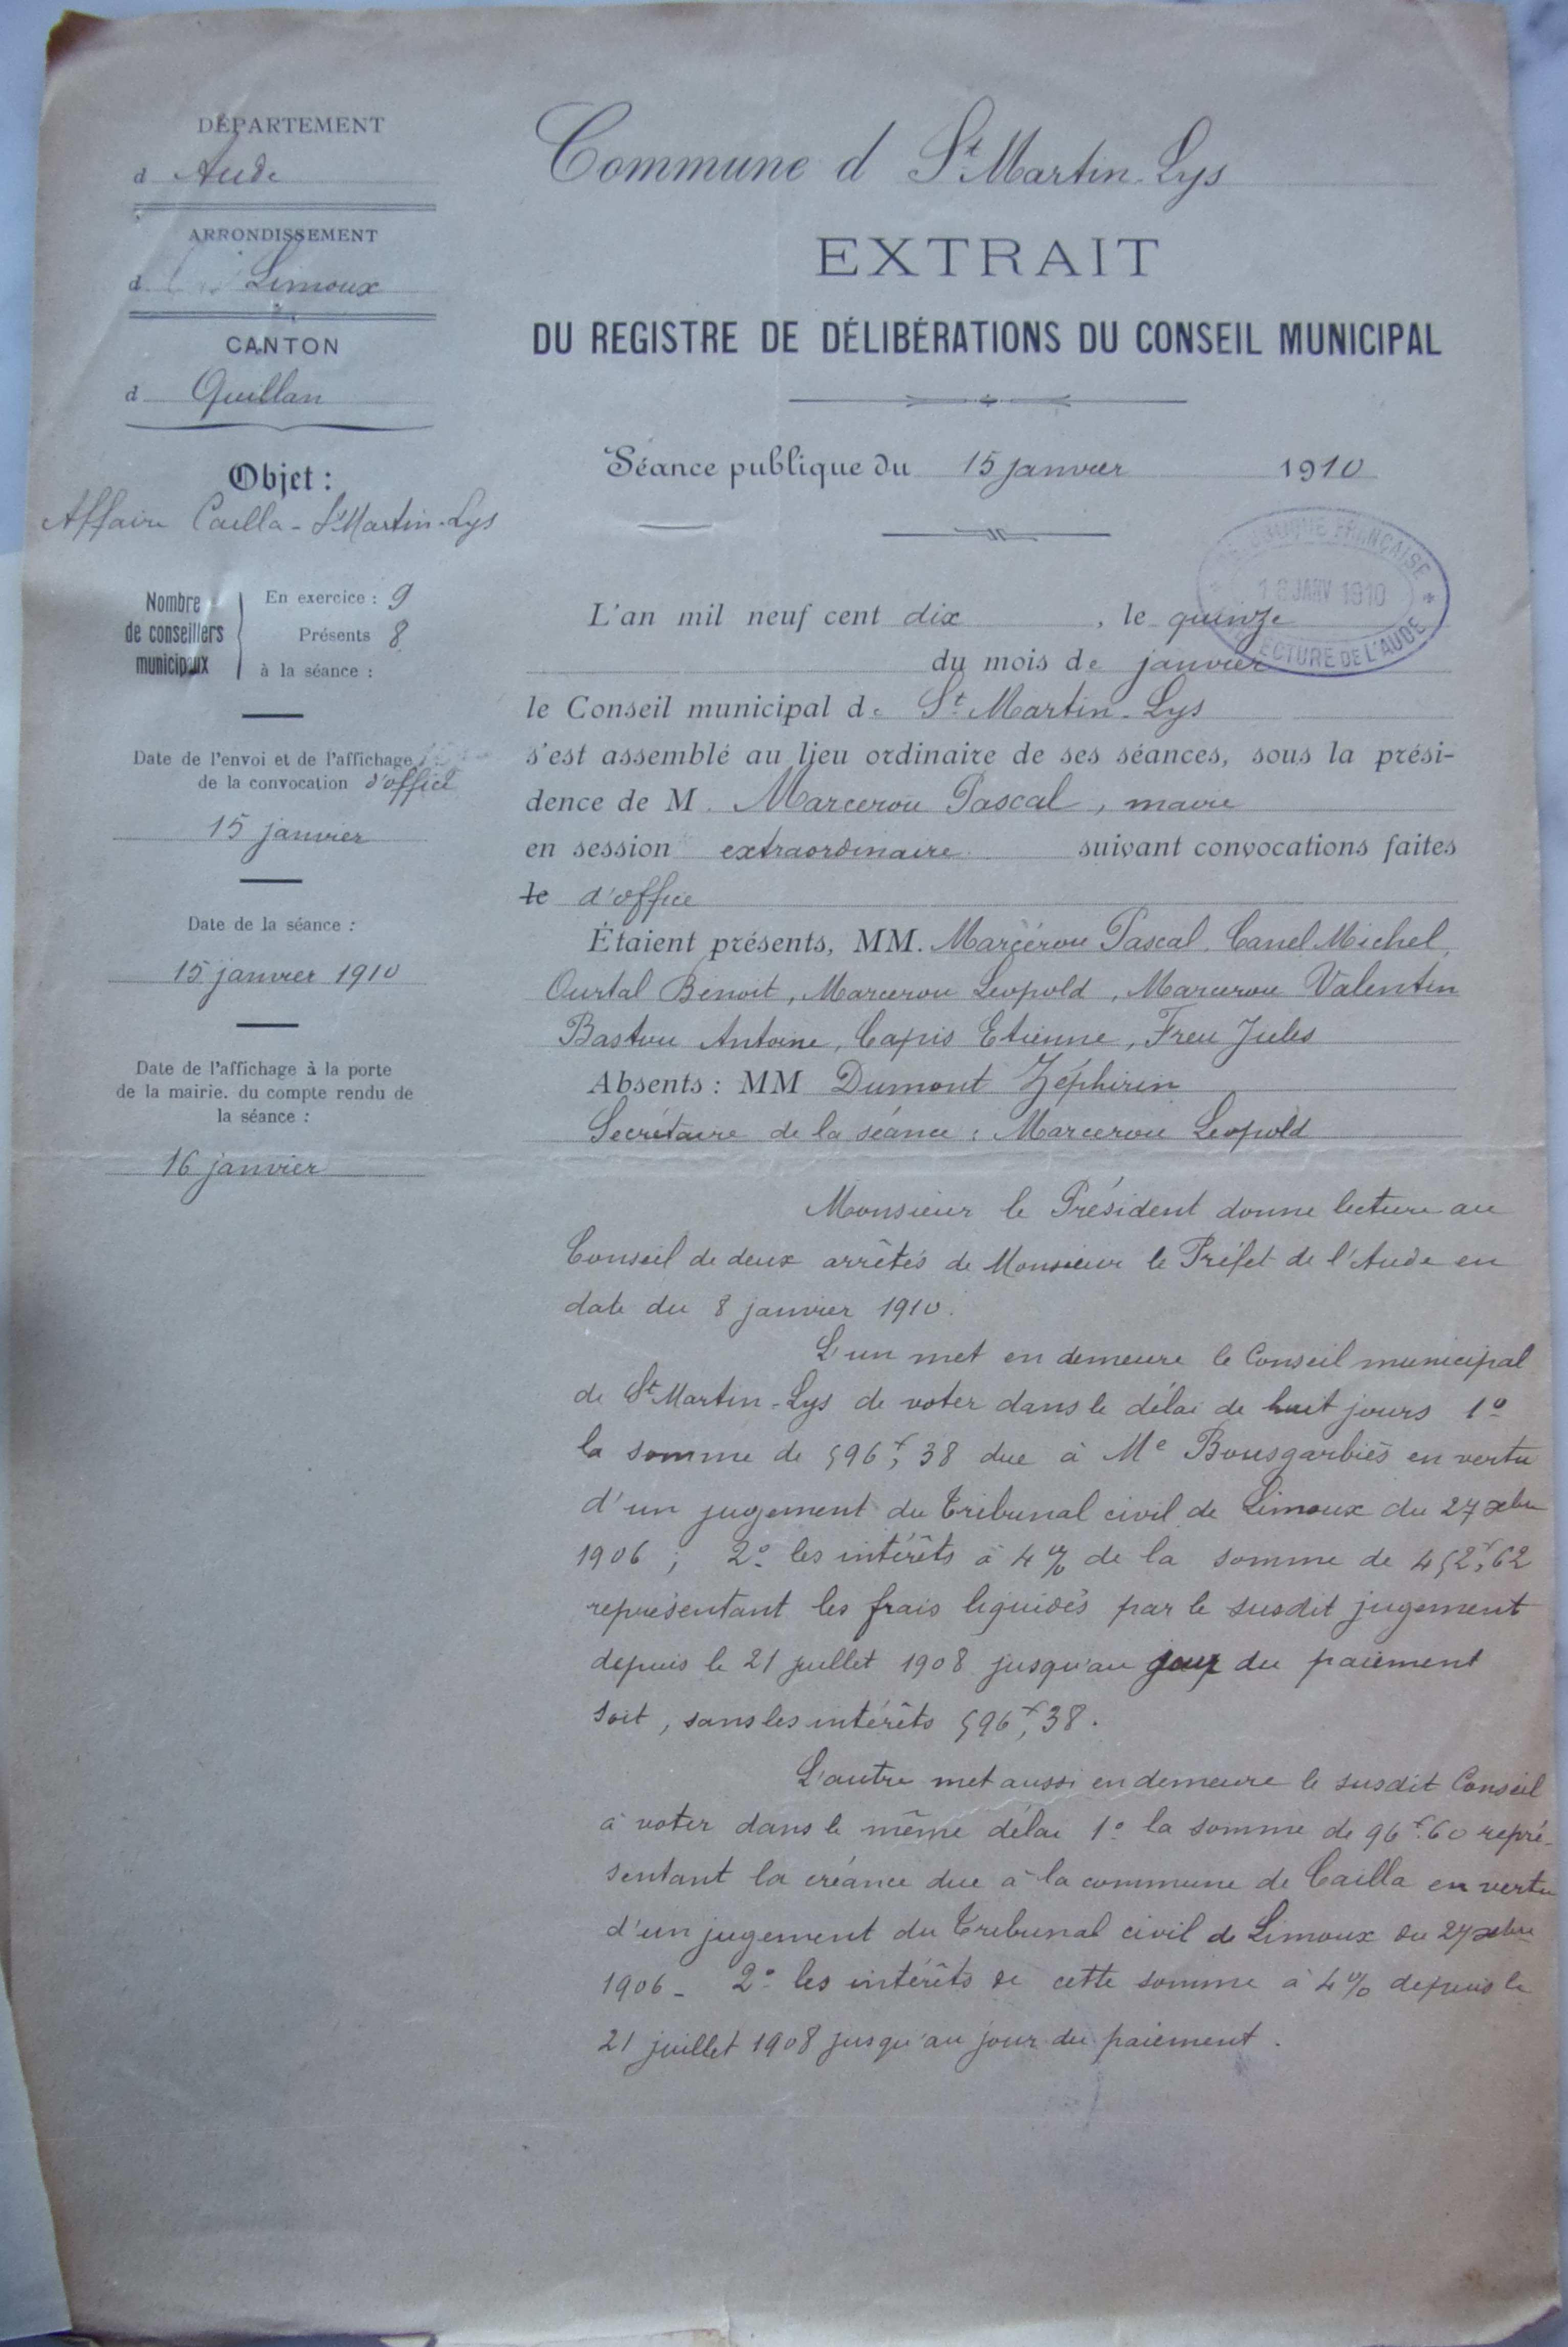 DÉPARTEMENT
d Aude
ARRONDISSEMENT
d Limoux
CANTON
d Quillan
Objet :
Affaire Cailla - St Martin-Lys
Nombre de conseillers municipaux
En exercice : 9
Présents 8
à la séance :
Date de l'envoi et de l'affichage
de la convocation d'office
15 janvier
Date de la séance :
15 janvier 1910
Date de l'affichage à la porte
de la mairie. du compte rendu de
la séance :
16 janvier
Commune d St Martin-Lys
EXTRAIT
DU REGISTRE DE DÉLIBÉRATIONS DU CONSEIL MUNICIPAL
Séance publique du 15 janvier 1910
RÉPUBLIQUE FRANÇAISE
JANV 1910
PRÉFECTURE DE L'AUDE
L'an mil neuf cent dix , le quinze
du mois de janvier
le Conseil municipal de St Martin-Lys
s'est assemblé au lieu ordinaire de ses séances, sous la prési-
dence de M. Marcerou Pascal, maire
en session extraordinaire suivant convocations faites
le d'office
Étaient présents, MM. Marcérou Pascal, Canel Michel,
Ourtal Benoit, Marcerou Leopold, Marcerou Valentin
Bastou Antoine, Capis Etienne, Freu Jules
Absents : MM Dumont Zéphirin
Secrétaire de la séance : Marcerou Leopold
Monsieur le Président donne lecture au
Conseil de deux arrêtés de Monsieur le Préfet de l'Aude en
date du 8 janvier 1910.
L'un met en demeure le Conseil municipal
de St Martin-Lys de voter dans le délai de huit jours 1º
la somme de 596f,38 due à Me Bousgarbiès en vertu
d'un jugement du Tribunal civil de Limoux du 27 xbre
1906 ; 2º les intérêts à 4 % de la somme de 452f,62
représentant les frais liquidés par le susdit jugement
depuis le 21 juillet 1908 jusqu'au jour du paiement
soit, sans les intérêts 596f,38.
L'autre met aussi en demeure le susdit Conseil
à voter dans le même délai 1º la somme de 96f.60 repré-
sentant la créance due à la commune de Cailla en vertu
d'un jugement du Tribunal civil de Limoux du 27 xbre
1906 - 2º les intérêts de cette somme à 4% depuis le
21 juillet 1908 jusqu'au jour du paiement.